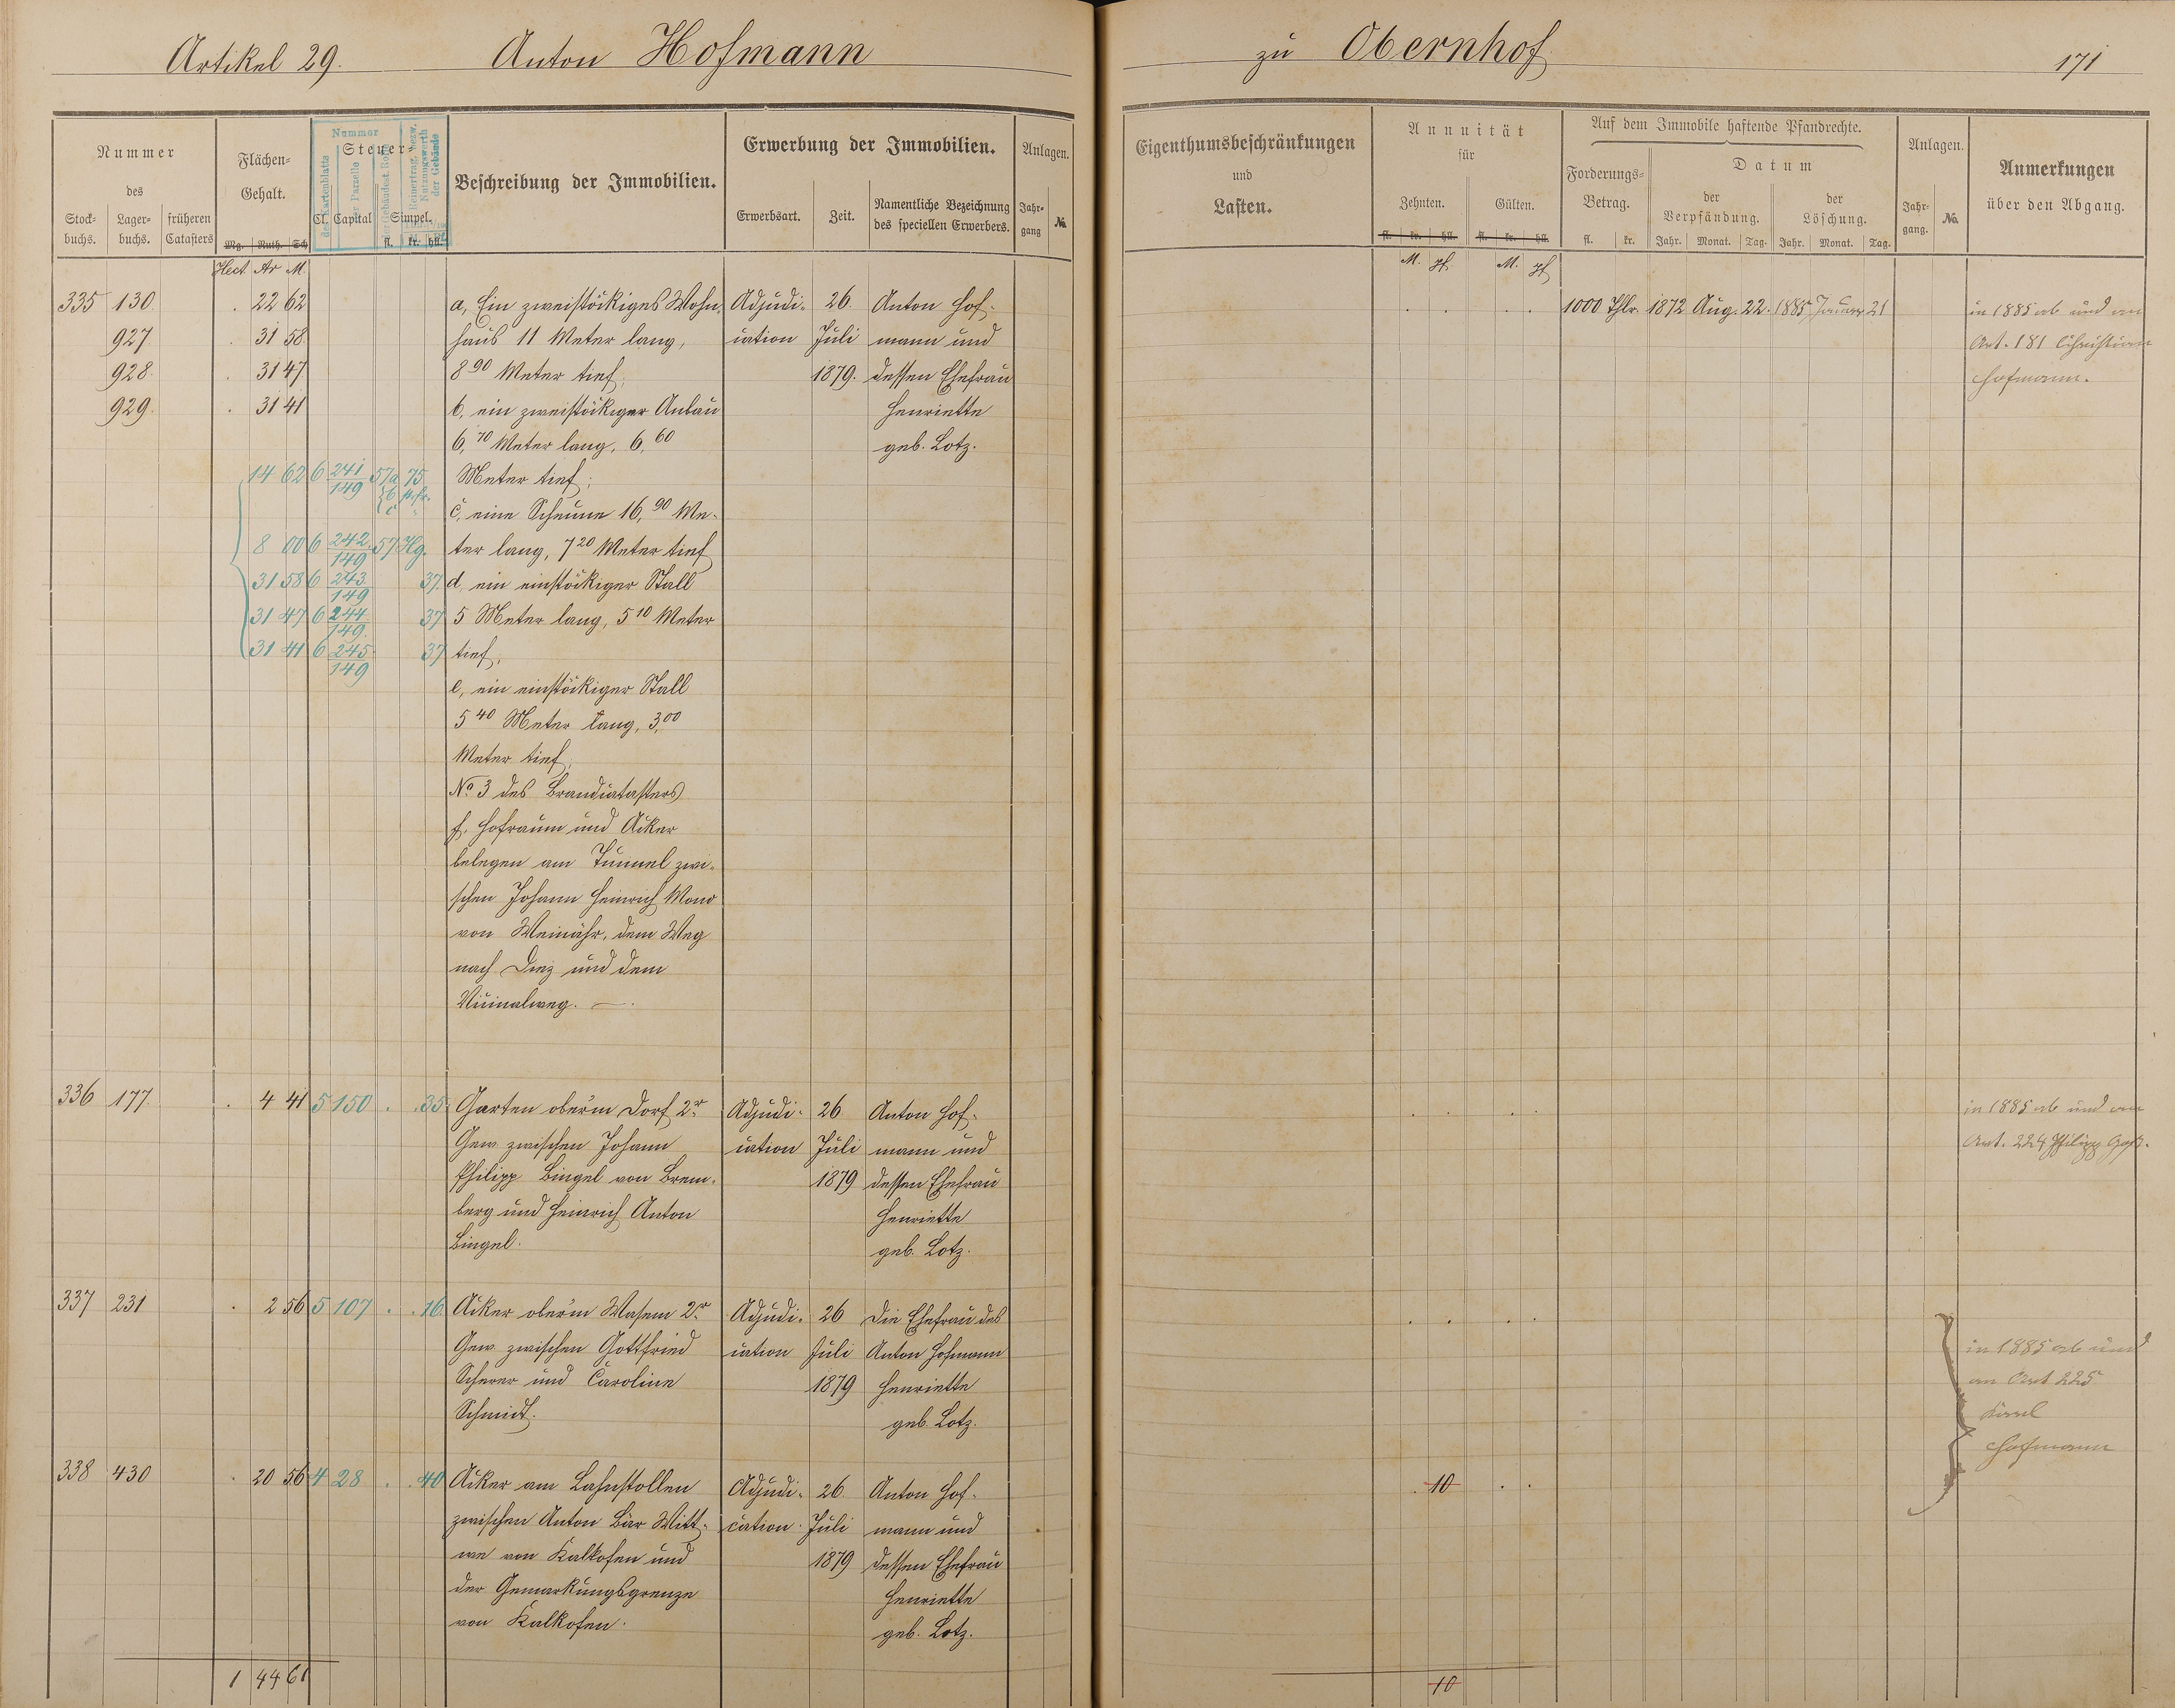 Artikel 29. Anton Hofmann
zu Obernhof 171
Nummer
des
Stock-buchs. Lager-buchs. früheren Catasters
Flächen-Gehalt.
Mg. Ruth. Sch
Hect Ar M.
Nummer
des Kartenblatts
der Parzelle
der Gebäudest. Rolle
Reinertrag, bezw. Nutzungswerth der Gebäude
Steuer-
Cl. Capital Simpel.
fl. kr. hll.
Beschreibung der Immobilien.
Erwerbung der Immobilien.
Erwerbsart. Zeit. Namentliche Bezeichnung des speciellen Erwerbers.
Anlagen.
Jahr-gang No.
Eigenthumsbeschränkungen
und
Lasten.
Annuität
für
Zehnten. Gülten.
fl. kr. hll. fl. kr. hll.
M. pf. M. pf
Auf dem Immobile haftende Pfandrechte.
Forderungs-Betrag.
fl. kr.
Datum
der Verpfändung. der Löschung.
Jahr. Monat. Tag. Jahr. Monat. Tag.
Anlagen.
Jahr-gang. No.
Anmerkungen
über den Abgang.
335 130. 22 62
927 31 58
928. 31 47
929. 31 41
14 62 6 241/149 57a 75
b
c
8 00 6 242/149 57 Hg.
31 58 6 243/149 37.
31 47 6 244/149. 37
31 41 6 245/149 37
a, Ein zweistöckiges Wohn-
haus 11 Meter lang,
8 90 Meter tief;
b, ein zweistöckiger Anbau
6,70 Meter lang, 6,60
Meter tief;
c, eine Scheune 16,90 Me-
ter lang, 7 20 Meter tief
d, ein einstöckiger Stall
5 Meter lang, 5 10 Meter
tief,
e, ein einstöckiger Stall
5 40 Meter lang, 3,00
Meter tief,
No 3 des Brandcatasters
f, Hofraum und Acker
belegen am Tunnel zwi-
schen Johann Heinrich
von Weinähr, dem Weg
nach Diez und dem
Vicinalweg. —.
Adjudi-
cation
26.
Juli
1879.
Anton Hof-
mann und
dessen Ehefrau
Henriette
geb. Lotz.
1000 Thlr. 1872 Aug. 22. 1885 Januar 21
in 1885 ab und an
Art. 181 Christian
Hofmann.
336 177. 4 41 5 150 35
Garten oberm Dorf 2r
Gew. zwischen Johann
Philipp Bingel von Brem-
berg und Heinrich Anton
Bingel.
Adjudi-
cation
26
Juli
1879
Anton Hof-
mann und
dessen Ehefrau
Henriette
geb. Lotz.
in 1885 ab und an
Art. 224 Philipp
337 231 2 56 5 107 16.
Acker oberm Wasem 2r
Gew. zwischen Gottfried
Scherer und Caroline
Schmidt.
Adjudi-
cation
26
Juli
1879
Die Ehefrau des
Anton Hofmann
Henriette
geb. Lotz.
in 1885 ab und
an Art 225
Karl
Hofmann
338 430 20 56 4 28 40
Acker am Lahnstollen
zwischen Anton Bär Witt-
we von Kalkofen und
der Gemarkungsgrenze
von Kalkofen.
Adjudi-
cation.
26.
Juli
1879
Anton Hof-
mann und
dessen Ehefrau
Henriette
geb. Lotz.
10
1 44 61
10